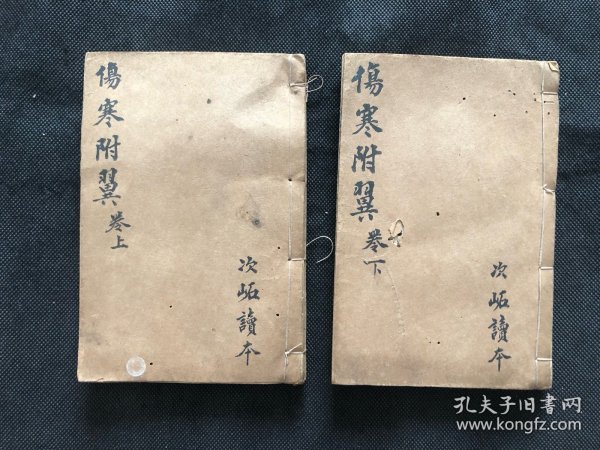 傷寒附翼卷上
次岳讀本
傷寒附翼卷下
次岳讀本
孔夫子旧书网
www.kongfz.com